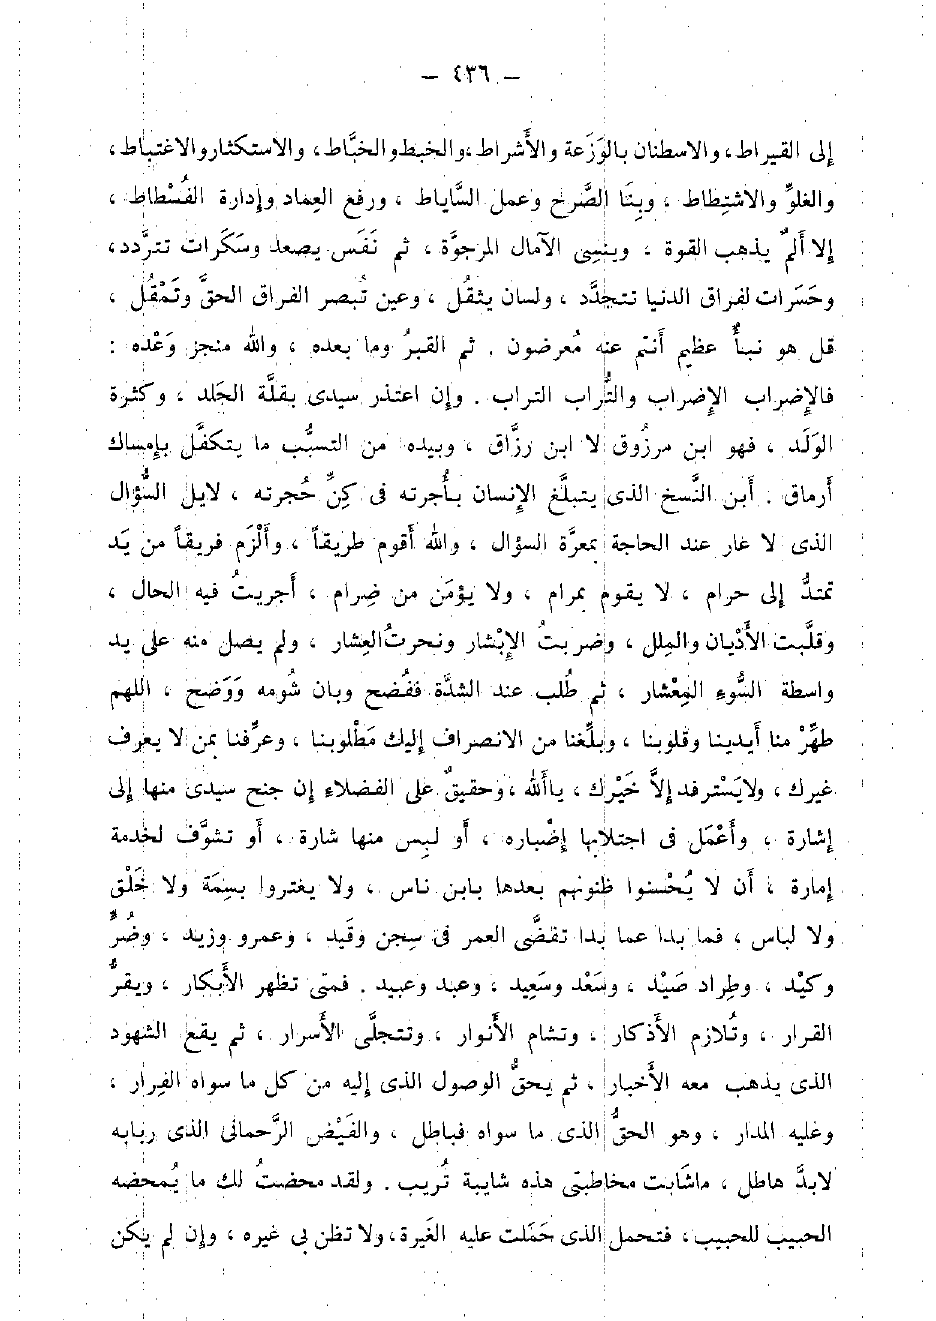 — ٤٣٦ —
إلى القيراط، والاسطنان بالوَزَعة والأَشراط، والخبط والخبَّاط، والاستكثار والاغتباط،
والغلوِّ والاشتِطاط ، وبِنَا الصَّرح وعمل السَّاياط ، ورفع العِماد وإدارة الفُسْطاط ،
إلا أَلمٌ يذهب القوة ، وينسِى الآمال المرجوَّة ، ثم نَفَس يصعد وسَكَرات تتردَّد،
وحَسَرات لفراق الدنيا تتجدَّد ، ولسان يثقُل ، وعين تُبصر الفراق الحقَّ وتَمْقُل ،
قل هو نبأٌ عظيم أنتم عنه مُعرضون . ثم القبرُ وما بعده ، والله منجز وَعْده :
فالإضراب الإضراب والتُّراب التراب . وإن اعتذر سيدى بقلَّة الجَلد ، وكثرة
الوَلَد ، فهو ابن مرزُوق لا ابن رزَّاق ، وبيده من التسبُّب ما يتكفَّل بإمساك
أرماق . أين النَّسخ الذى يتبلَّغ الإنسان بأُجرته فى كِنٍّ حُجرته ، لابل السُّؤال
الذى لا عار عند الحاجة بمعرَّة السؤال ، والله أقوم طريقاً ، وألْزَم فريقاً من يَد
تمتدُّ إلى حرام ، لا يقوم بمرام ، ولا يؤمَن من ضِرام ، أجريتُ فيه الحال ،
وقلَّبت الأَدْيان والمِلل ، وضربتُ الإبْشار ونحرتُ العِشار ، ولم يصل منه على يد
واسطة السُّوء المِعْشار ، ثم طُلب عند الشدَّة ففُضح وبان شُومه وَوَضح ، اللهم
طهِّرْ منا أيدينا وقلوبنا ، وبلِّغنا من الانصراف إليك مَطْلوبنا ، وعرِّفنا بمن لا يعرف
غيرك ، ولا يَسْترفد إلاَّ خَيْرك ، ياألله ، وحقيقٌ على الفضلاء إن جنح سيدى منها إلى
إشارة ، وأعْمَل فى اجتلابها إضْباره ، أو لبِس منها شارة ، أو تشوَّف لخدمة
إمارة ، أن لا يُحْسنوا ظنونهم بعدها بابن ناس ، ولا يغتروا بسِمَة ولا خَلْق
ولا لباس ، فما بدا عما بدا تقضَّى العمر فى سِجن وقَيد ، وعمرو وزيد ، وضُرٍّ
وكَيْد ، وطِراد صَيْد ، وسَعْد وسَعِيد ، وعبد وعبيد . فمتى تظهر الأَبكار ، ويقرُّ
القرار ، وتُلازم الأَذكار ، وتشام الأَنوار ، وتتجلَّى الأَسرار ، ثم يقع الشهود
الذى يذهب معه الأَخبار ، ثم يحقُّ الوصول الذى إليه من كل ما سواه الفِرار ،
وعليه المدار ، وهو الحقُّ الذى ما سواه فباطل ، والفَيْض الرَّحمانى الذى ربَابه
لابدَّ هاطل ، ماشَابت مخاطبتى هذه شايبة تُريب . ولقد محضتُ لك ما يُمحضه
الحبيب للحبيب، فتحمل الذى حَمَلت عليه الغَيرة، ولا تظن بى غيره ، وإن لم يكن